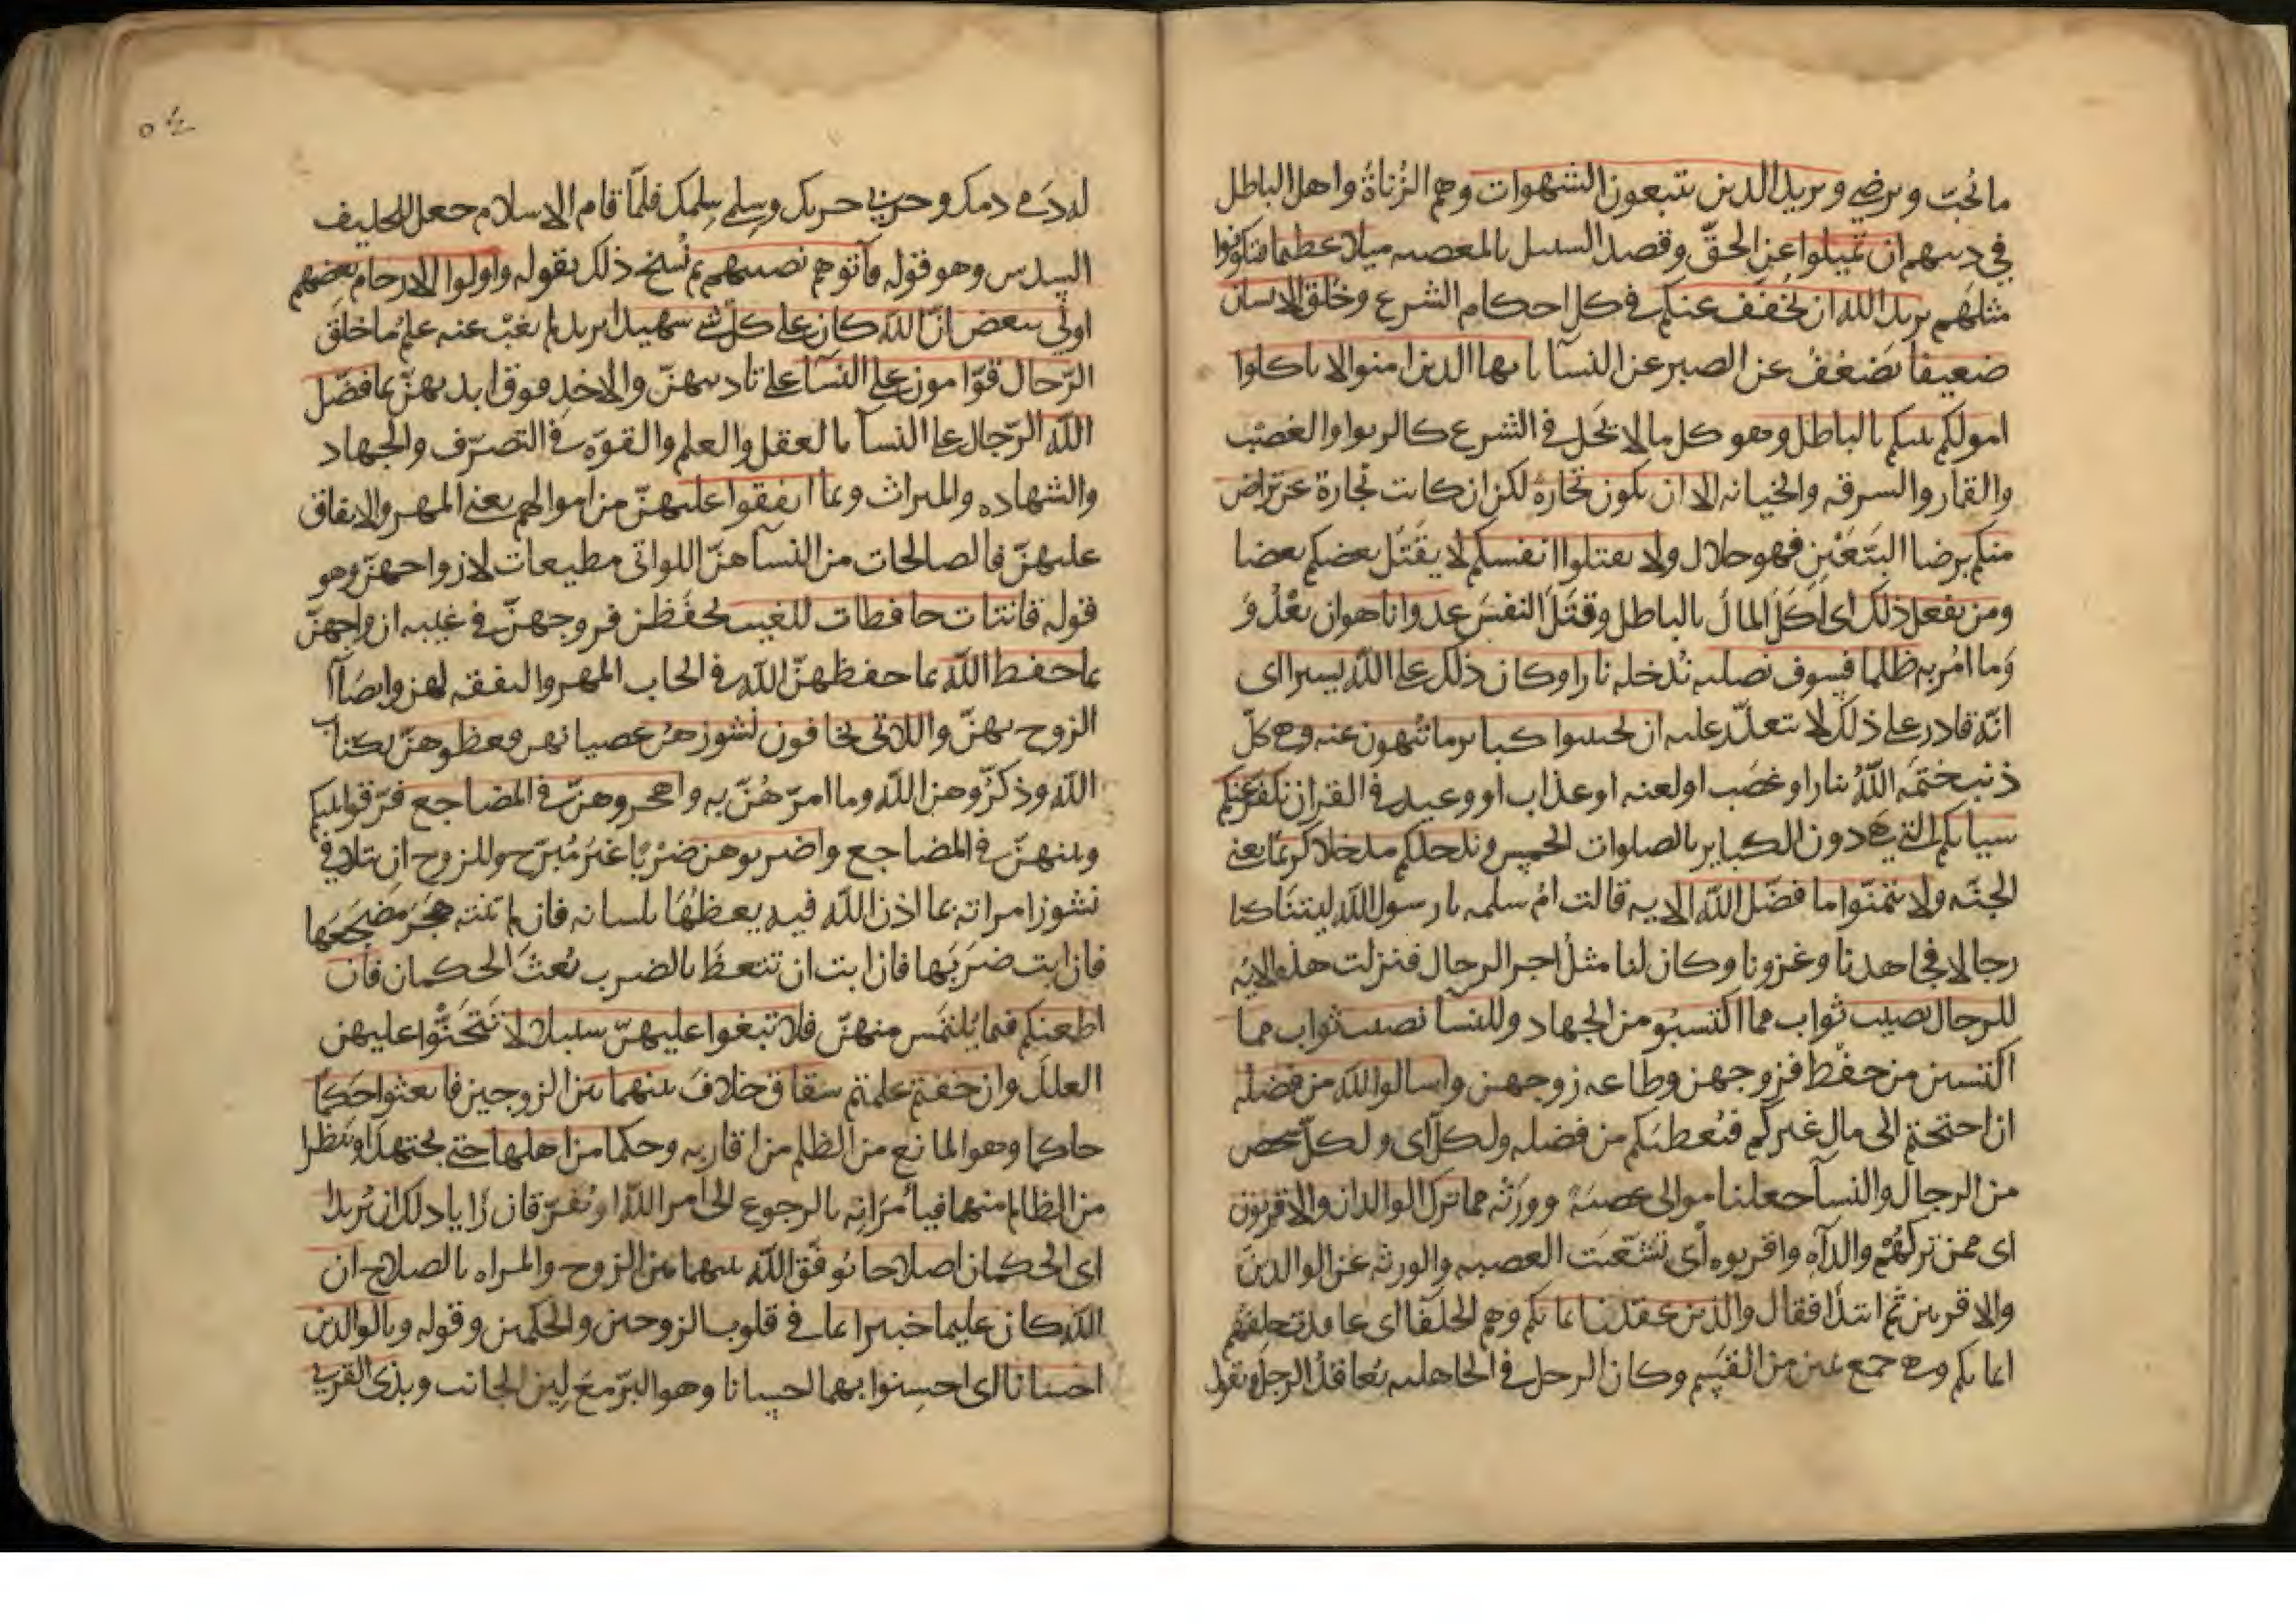 ما يحب ويرضى ويريد الذين يتبعون الشهوات وهم الزناة واهل الباطل
في دينهم ان تميلوا عن الحق وقصد السبيل بالمعصيه ميلا عظيما فتكونوا
مثلهم يريد الله ان يخفف عنكم في كل احكام الشرع وخلق الانسان
ضعيفا يضعف عن الصبر عن النسآ يا يها الذين امنوا لا تاكلوا
امولكم بينكم بالباطل وهو كل ما لا يحل في الشرع كالربوا والغصب
والقمار والسرقه والخيانه الا ان تكون تجارة لكن ان كانت تجارة عن تراض
منكم برضا البيعين فهو حلال ولا تقتلوا انفسكم لا يقتل بعضكم بعضا
ومن يفعل ذلك اى اكل المال بالباطل وقتل النفس عدوانا هو ان يعدو
وما امر به ظلما فسوف نصليه ندخله نارا وكان ذلك على الله يسيرا اى
انه قادر على ذلك لا يتعذر عليه ان تجتنبوا كباير ما تنهون عنه وهى كل
ذنب ختمه الله بنار او غضب او لعنه او عذاب او وعيد في القران نكفر عنكم
سياتكم التي هى دون الكباير بالصلوات الخمس وندخلكم مدخلا كريما يعنى
الجنه ولا تتمنوا ما فضل الله الايه قالت ام سلمه يا رسول الله ليتنا كنا
رجالا فجاهدنا وغزونا وكان لنا مثل اجر الرجال فنزلت هذه الايه
للرجال نصيب ثواب مما اكتسبو من الجهاد وللنسآ نصيب ثواب مما
اكتسبن من حفظ فروجهن وطاعه زوجهن واسالوا الله من فضله
ان احتجتم الى مال غيركم فيعطيكم من فضله ولكل اى ولكل شخص
من الرجال والنسآ جعلنا موالى عصبة وورثه مما ترك الوالدان والاقربون
اى ممن تركهم والداه واقربوه اى تشعبت العصبه والورثه عن الوالدين
والاقربين ثم ابتدا فقال والذين عقدت ايمانكم وهم الحلفا اى عاقدت حلفهم
ايمانكم وهى جمع يمين من القسم وكان الرجل في الجاهليه يعاقد الرجل ويقول
له دمى دمك وحربي حربك وسلمى سلمك فلما قام الاسلام جعل للحليف
السدس وهو قوله فآتوهم نصيبهم ثم نسخ ذلك بقوله واولوا الارحام بعضهم
اولى ببعض ان الله كان على كل شى شهيدا يريد لم يغب عنه علم ما خلق
الرجال قوامون على النسآ على تاديبهن والاخذ فوق ايديهن بما فضل
الله الرجال على النسآ بالعقل والعلم والقوة في التصرف والجهاد
والشهاده والميراث وبما انفقوا عليهن من اموالهم يعنى المهر والانفاق
عليهن فالصالحات من النسآ هن اللواتى مطيعات لازواجهن وهو
قوله قانتات حافظات للغيب يحفظن فروجهن في غيبه ازواجهن
بما حفظ الله بما حفظهن الله في ايجاب المهر والنفقه لهن وايصآ
الزوج بهن واللاتى تخافون نشوزهن عصيانهن فعظوهن بكتاب
الله وذكروهن الله وما امرهن به واهجروهن في المضاجع فرقوا بينكم
وبينهن في المضاجع واضربوهن ضربا غير مبرح وللزوج ان يتلافى
نشوز امراته بما اذن الله فيه يعظها بلسانه فان لم تنته هجر مضجعها
فان ابت ضربها فان ابت ان تتعظ بالضرب بعث الحكمان فان
اطعنكم فيما يلتمس منهن فلا تبغوا عليهن سبيلا لا تتجنوا عليهن
العلل وان خفتم علمتم شقاق خلاف بينهما بين الزوجين فابعثوا حكما
حاكما وهو المانع من الظلم من اقاربه وحكما من اهلها حتى يجتهدا وينظرا
من الظالم منهما فيامرانه بالرجوع الى امر الله او يفرقان ان رايا ذلك ان يريدا
اى الحكمان اصلاحا يوفق الله بينهما بين الزوج والمراه بالصلاح ان
الله كان عليما خبيرا بما في قلوب الزوجين والحكمين وقوله وبالوالدين
احسانا اى احسنوا بهما احسانا وهو البر مع لين الجانب وبذى القربى